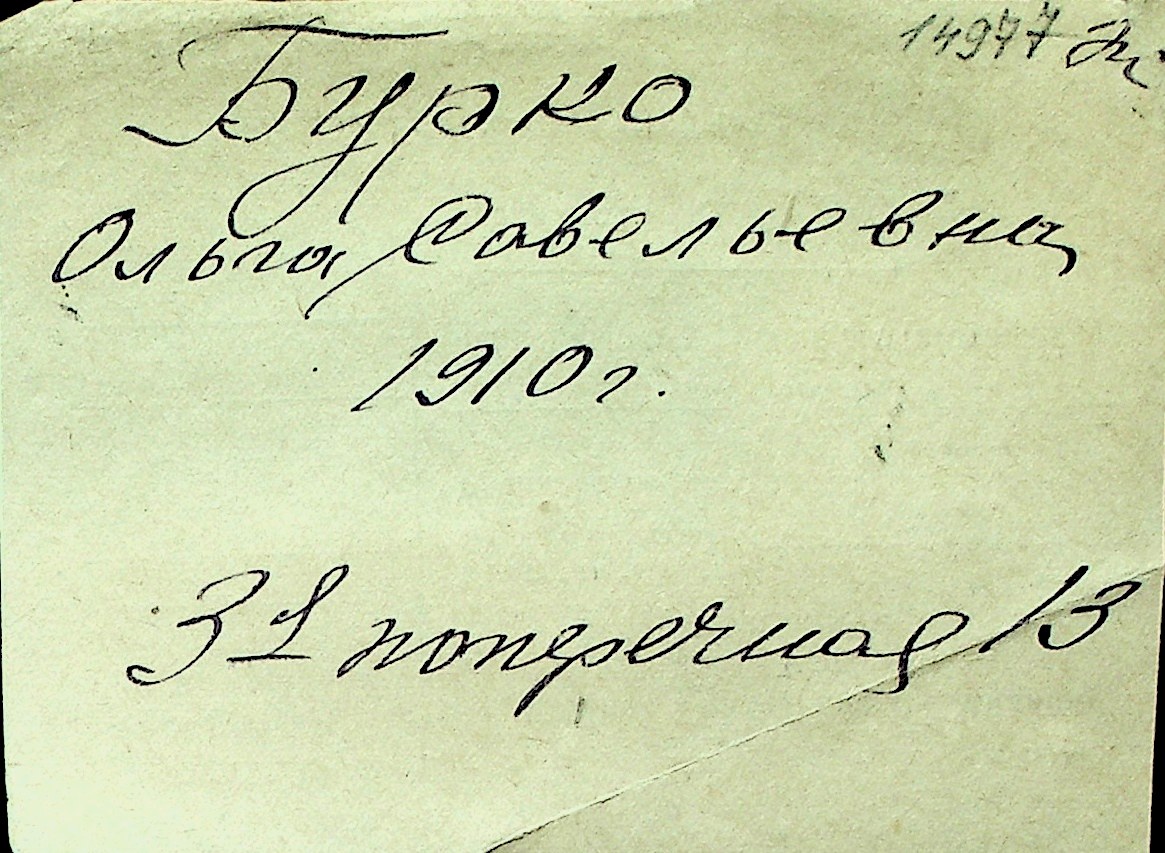 14977
Бурко
Ольга Савельевна
1910г.
31 поперечная 13